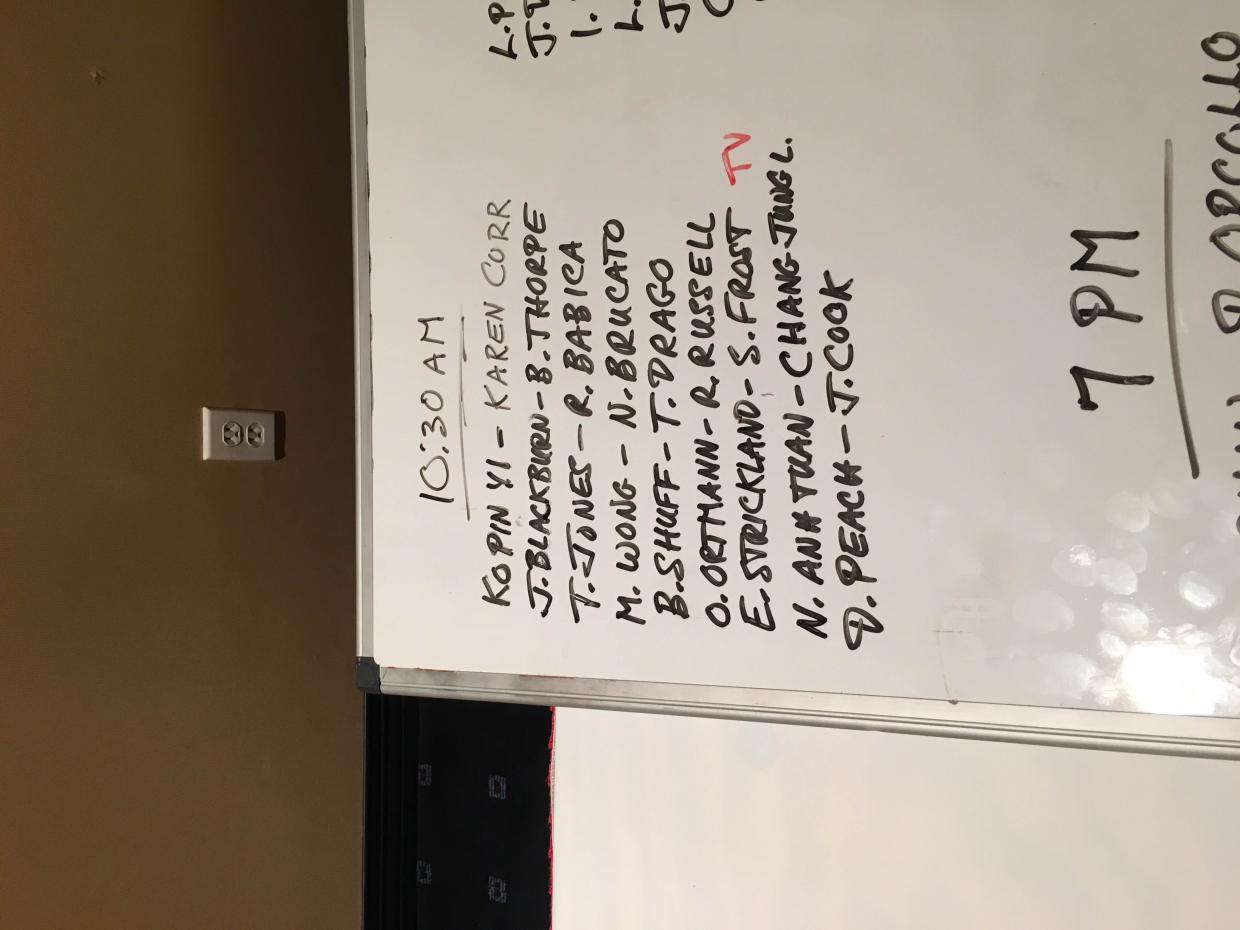 10:30 AM
KO PIN YI - KAREN CORR
J. BLACKBURN - B. THORPE
T. JONES - R. BABICA
M. WONG - N. BRUCATO
B. SHUFF - T. DRAGO
O. ORTMANN - R. RUSSELL
E. STRICKLAND - S. FROST TV
N. ANH TUAN - CHANG JUNG L.
D. PEACH - J. COOK
L.P
I.
L.
7 PM